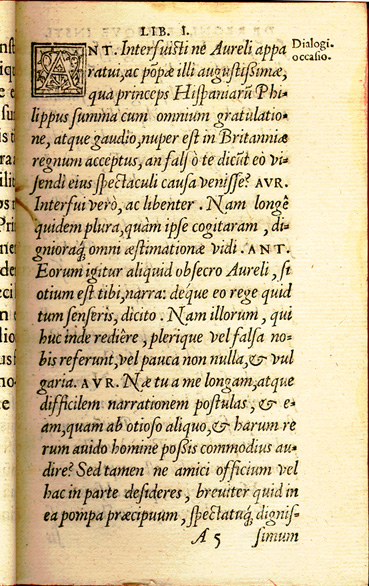 LIB. I.
ANT. Interfuisti nè Aureli appa
Dialogi.
occasio.
ratui, ac pōpæ illi augustissimæ,
qua princeps Hispaniarū Phi-
lippus summa cum omnium gratulatio-
ne, atque gaudio, nuper est in Britanniæ
regnum acceptus, an falsò te dicūt eò vi-
sendi eius spectaculi causa venisse? AVR.
Interfui verò, ac libenter. Nam longè
quidem plura, quàm ipse cogitaram, di-
gnioraq́; omni æstimatione vidi. ANT.
Eorum igitur aliquid obsecro Aureli, si
otium est tibi, narra: déque eo rege quid
tum senseris, dicito. Nam illorum, qui
huc inde rediêre, plerique vel falsa no-
bis referunt, vel pauca non nulla, & vul
garia. AVR. Næ tu a me longam, atque
difficilem narrationem postulas, & e-
am, quam ab otioso aliquo, & harum re
rum auido homine possis commodius au-
dire? Sed tamen ne amici officium vel
hac in parte desideres, breuiter quid in
ea pompa præcipuum, spectatuq́; dignis-
A 5
simum